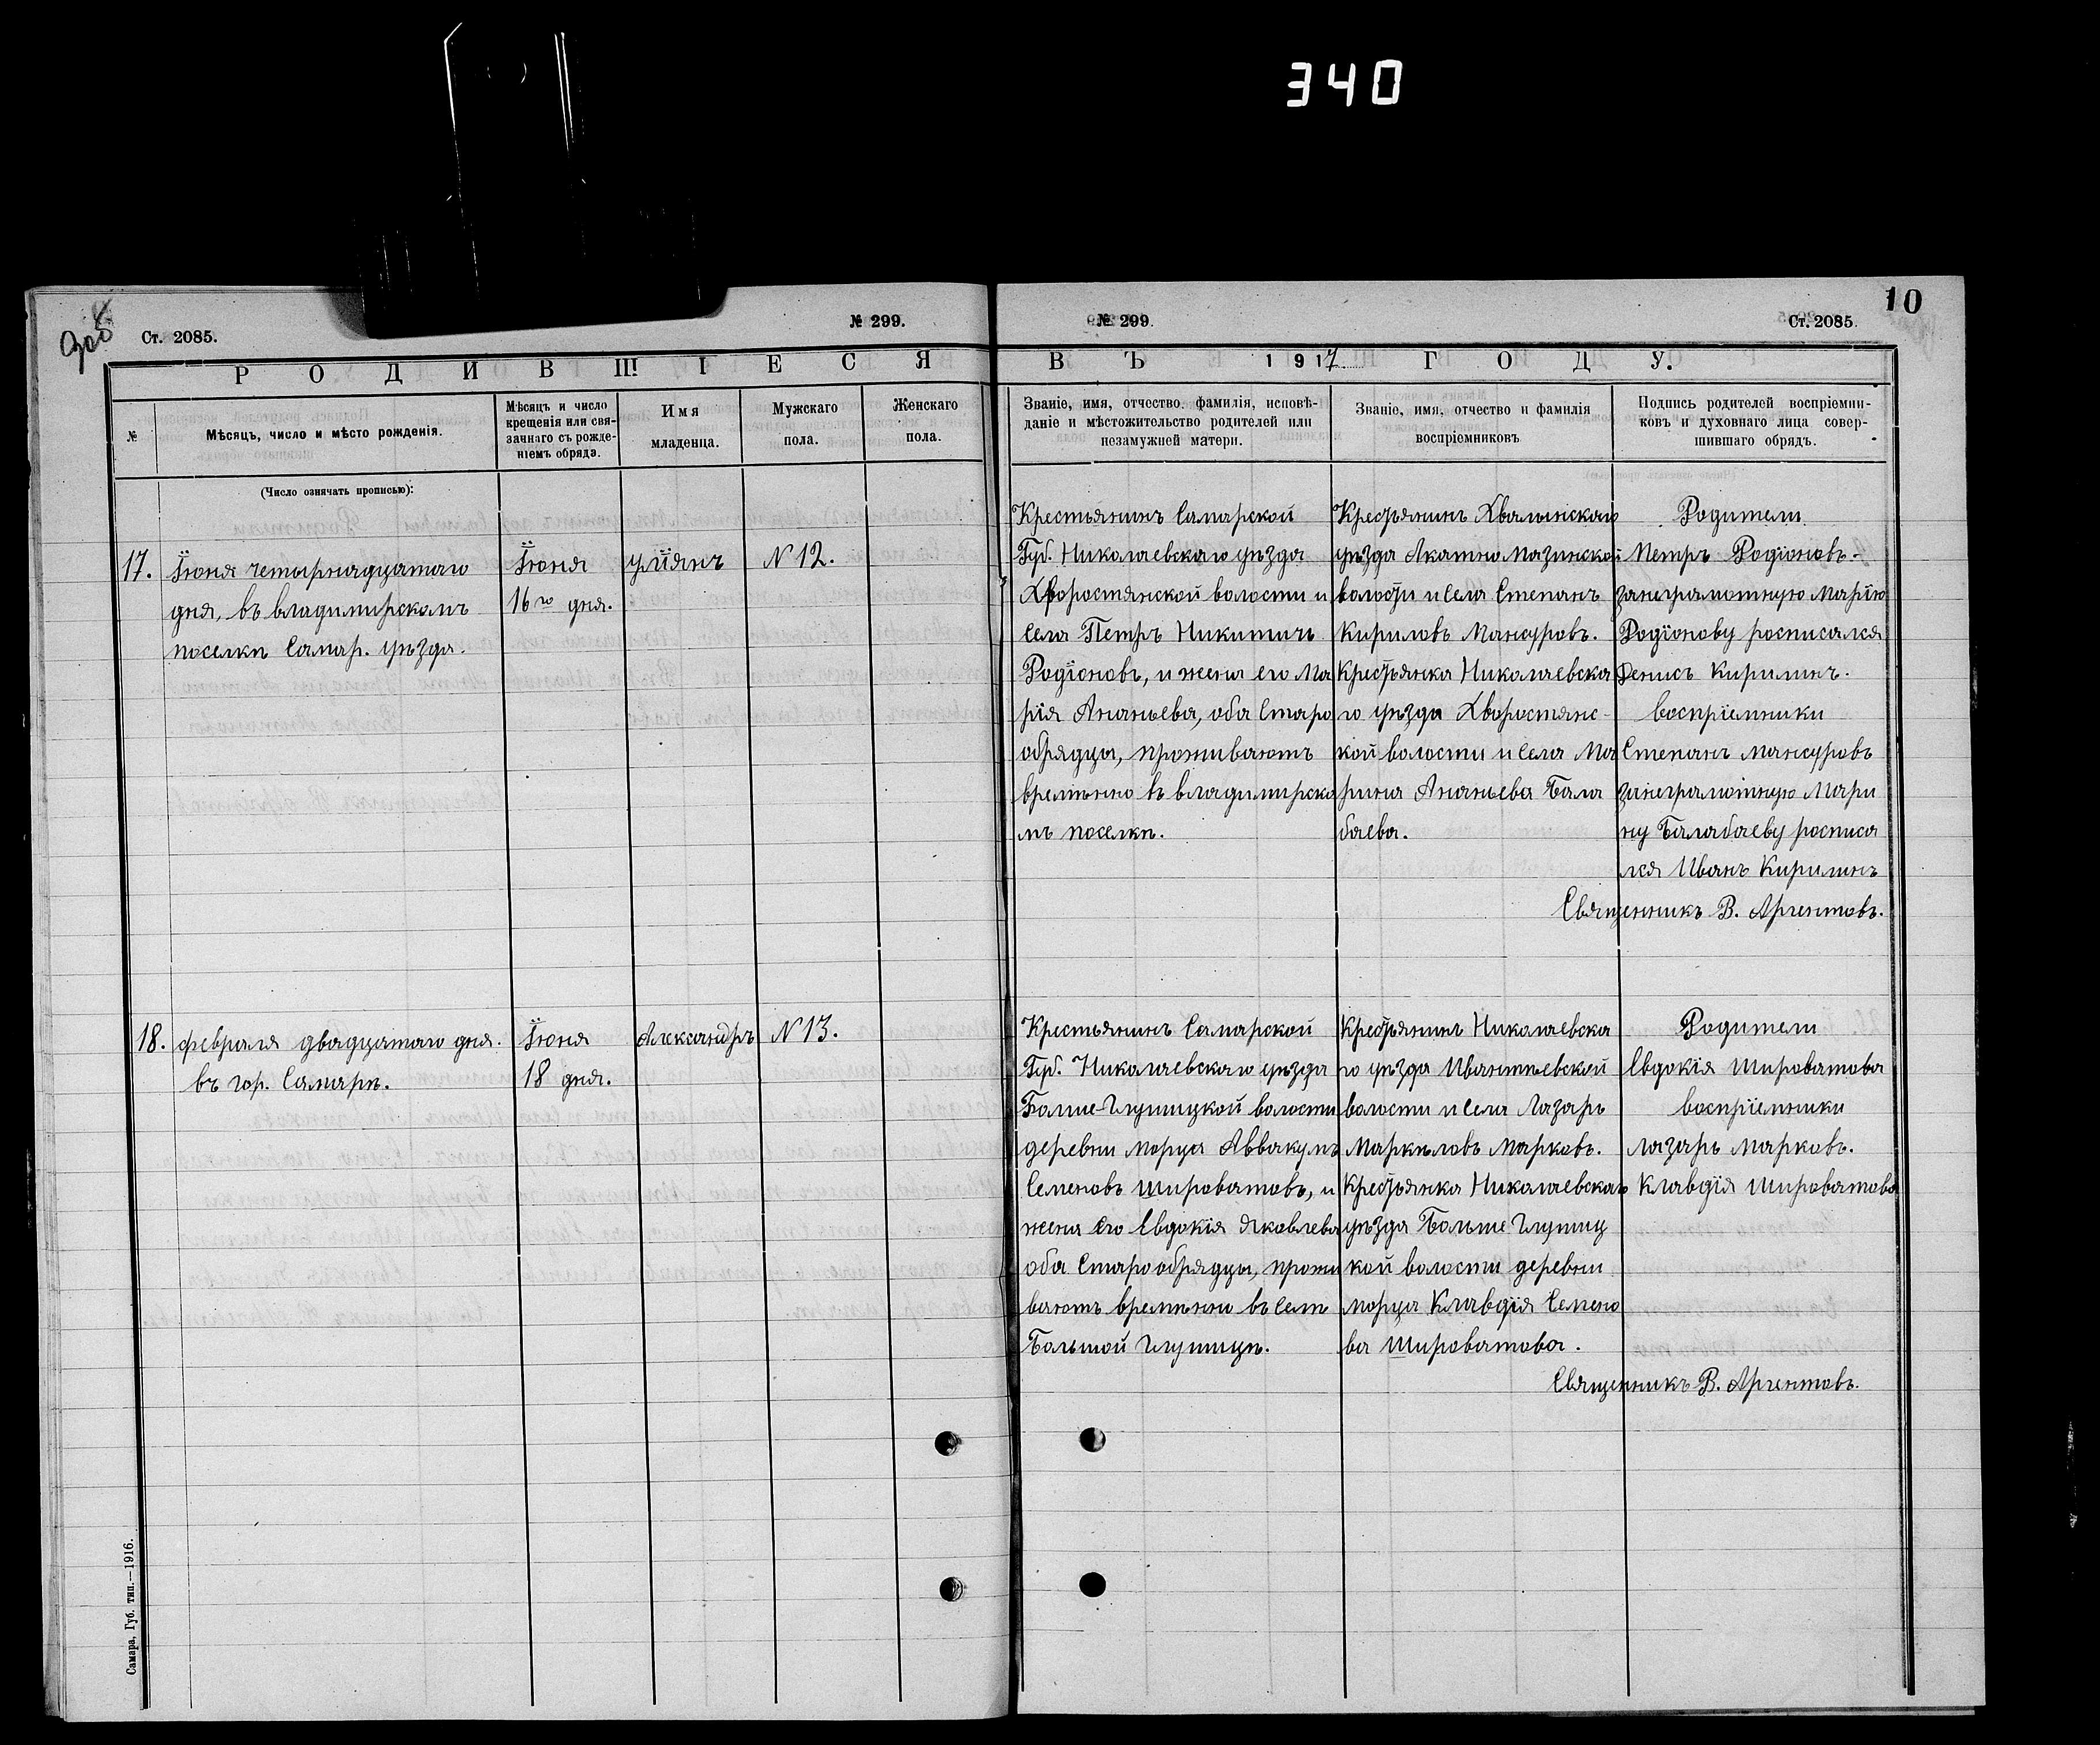 340
10
908
Ст. 2085.
№ 299.
№ 299.
Ст. 2085.
РОДИВШІЕСЯ
ВЪ 1917 ГОДУ.
№
Мѣсяцъ, число и мѣсто рожденія.
Мѣсяцъ и число
крещенія или свя-
заннаго съ рожде-
ніемъ обряда.
Имя
младенца.
Мужскаго
пола.
Женскаго
пола.
Званіе, имя, отчество, фамилія, исповѣ-
даніе и мѣстожительство родителей или
незамужней матери.
Званіе, имя, отчество и фамилія
воспріемниковъ
Подпись родителей воспріемни-
ковъ и духовнаго лица совер-
шившаго обрядъ.
(Число означать прописью):
17.
Іюня четырнадцатаго
дня, въ владимирскомъ
поселкѣ Самар. уѣзда.
Іюня
16го дня.
Уліянъ
N 12.
Крестьянинъ Самарской
Губ. Николаевскаго уѣзда
Хворостянской волости и
села Петръ Никитичъ
Родіоновъ, и жена его Ма
рія Ананьева, оба Старо
обрядцы, проживаютъ
времѣнно въ владимирско
мъ поселкѣ.
Крестьянинъ Хвалынскаго
уѣзда Акатно Мазинской
волости и села Степанъ
Кириловъ Мансуровъ.
Крестьянка Николаевска
го уѣзда Хворостянс-
кой волости и села Ма
рина Ананьева Бала
баева.
Родители
Петръ Родіоновъ.-
занеграмотную Марію
Родіонову росписался
Денисъ Кирилинъ.
воспріемники
Степанъ Мансуровъ
занеграмотную Мари
ну Балабаеву росписа
лся Иванъ Кирилинъ
Священникъ В. Аргентовъ.
18.
февраля двадцатаго дня.
въ гор. Самарѣ.
Іюня
18 дня.
Александръ
N 13.
Крестьянинъ Самарской
Губ. Николаевскаго уѣзда
Болше-Глушицкой волости
деревни Морца Аввакумъ
Семеновъ Шароватовъ, и
жена его Евдокія Яковлева
оба Старообрядцы, прожи
ваютъ времѣнно въ селѣ
Большой Глушицѣ.
Крестьянинъ Николаевска
го уѣзда Ивантѣевской
волости и села Лазарь
Маркѣловъ Марковъ.
Крестьянка Николаевскаго
уѣзда Больше Глушиц
кой волости деревни
Морца Клавдія Семено
ва Шароватова.
Родители
Евдокія Широватова
воспріемники
Лазарь Марковъ.
Клавдія Широватова
Священникъ В. Аргентовъ.
Самара, Губ. тип.—1916.